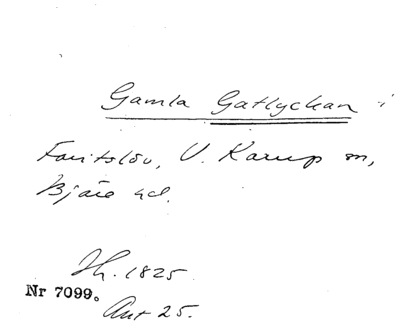 Gamla Gatlyckan i
Faritslöv, V. Karup sn,
Bjäre hd.
Jh. 1825
Nr 7099.
Ant 25.